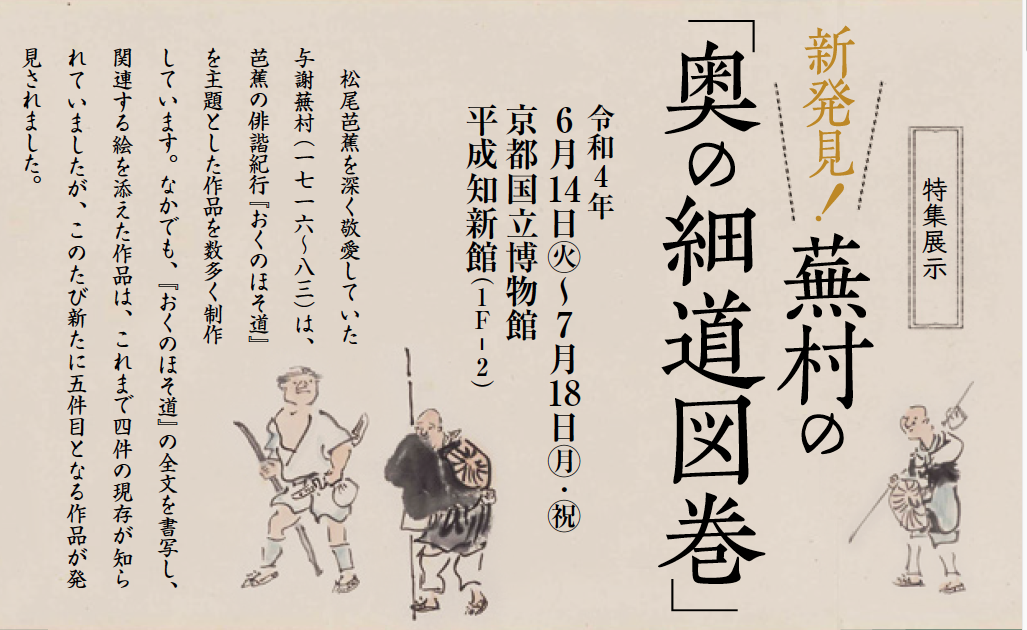 特集展示
新発見！蕪村の
「奥の細道図巻」
令和4年
6月14日㊋〜7月18日㊊・㊗
京都国立博物館
平成知新館（1F-2）
松尾芭蕉を深く敬愛していた
与謝蕪村（一七一六〜八三）は、
芭蕉の俳諧紀行『おくのほそ道』
を主題とした作品を数多く制作
しています。なかでも、『おくのほそ道』の全文を書写し、
関連する絵を添えた作品は、これまで四件の現存が知ら
れていましたが、このたび新たに五件目となる作品が発
見されました。